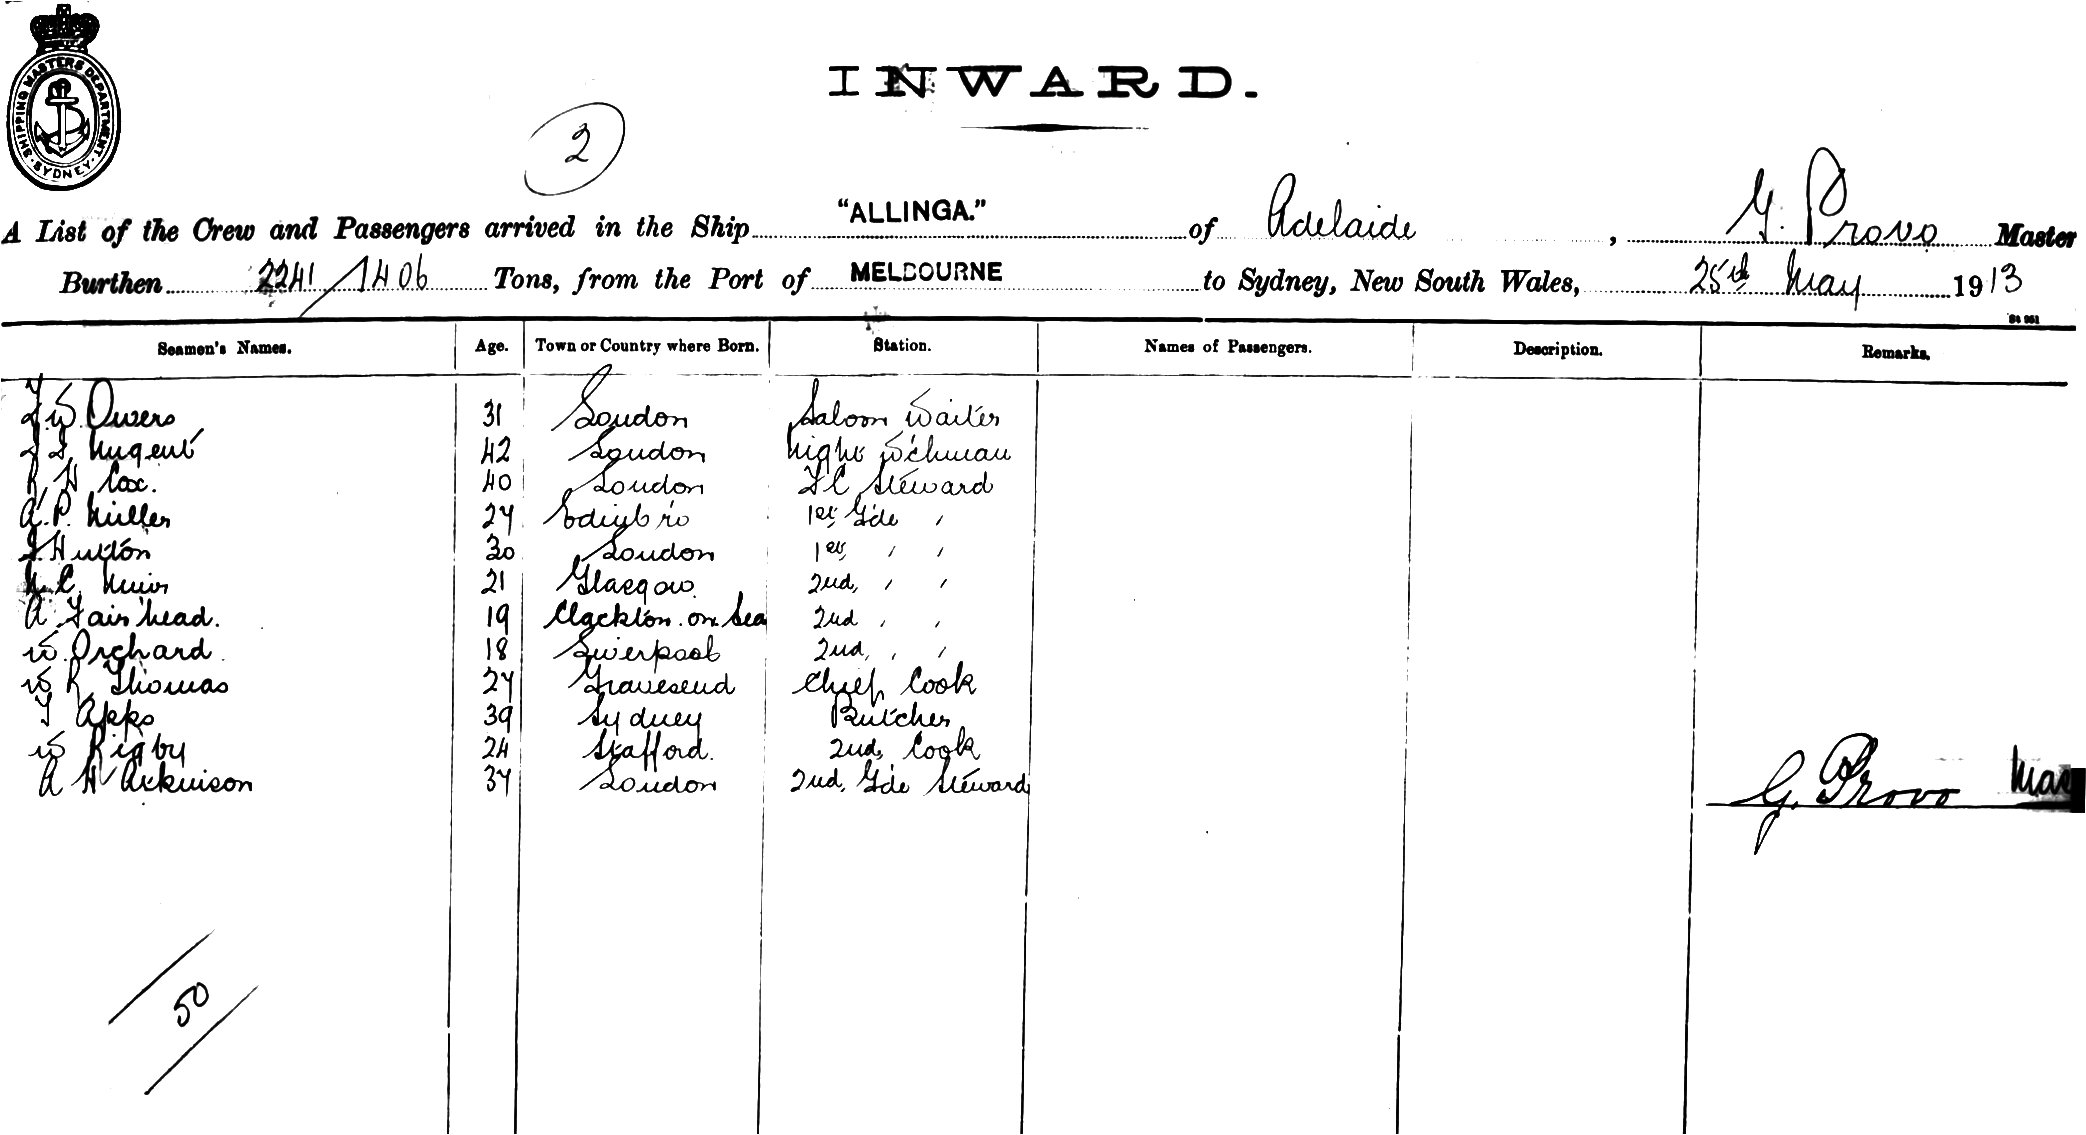 SHIPPING MASTERS DEPARTMENT. SYDNEY.
INWARD.
2
A List of the Crew and Passengers arrived in the Ship "ALLINGA." of Adelaide, G. Provo Master
Burthen 2241/1406 Tons, from the Port of MELBOURNE to Sydney, New South Wales, 25th May 1913
Seamen's Names. Age. Town or Country where Born. Station. Names of Passengers. Description. Remarks.
W. Owers 31 London Saloon Waiter
Nugent 42 London Night W'chman
R H Cox. 40 London F C Steward
A. P. Miller 27 Edinb'ro 1st G'de "
Hutton 30 London 1st " "
C. Muir 21 Glasgow 2nd " "
A. Fairhead. 19 Clackton on Sea 2nd " "
W. Orchard 18 Liverpool 2nd " "
W R Thomas 27 Gravesend Chief Cook
T Apps 39 Sydney Butcher
W Rigby 24 Stafford. 2nd Cook
A H Atkinson 37 London 2nd G'de Steward
G. Provo Mas
50